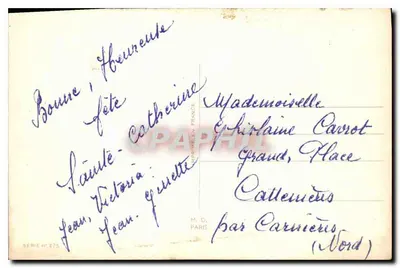 Bonne, Heureuse
fête
Sainte-Catherine
Jean, Victoria
Jean. Ginette
Mademoiselle
Ghislaine Carrot
Grand, Place
Cattenières
par Carnières
(Nord)
M. D.
PARIS